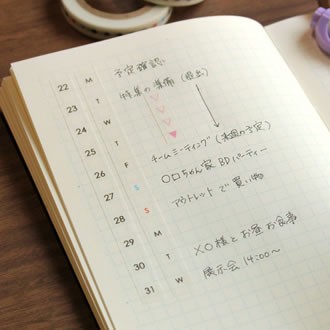 22 M 予定確認
23 T 特集の準備(提出)
24 W
25 T
26 F チームミーティング(来週の予定)
27 S 〇口ちゃん家 BDパーティー
28 S アウトレットで買い物
29 M
30 T ×〇様とお昼お食事
31 W 展示会 14:00〜